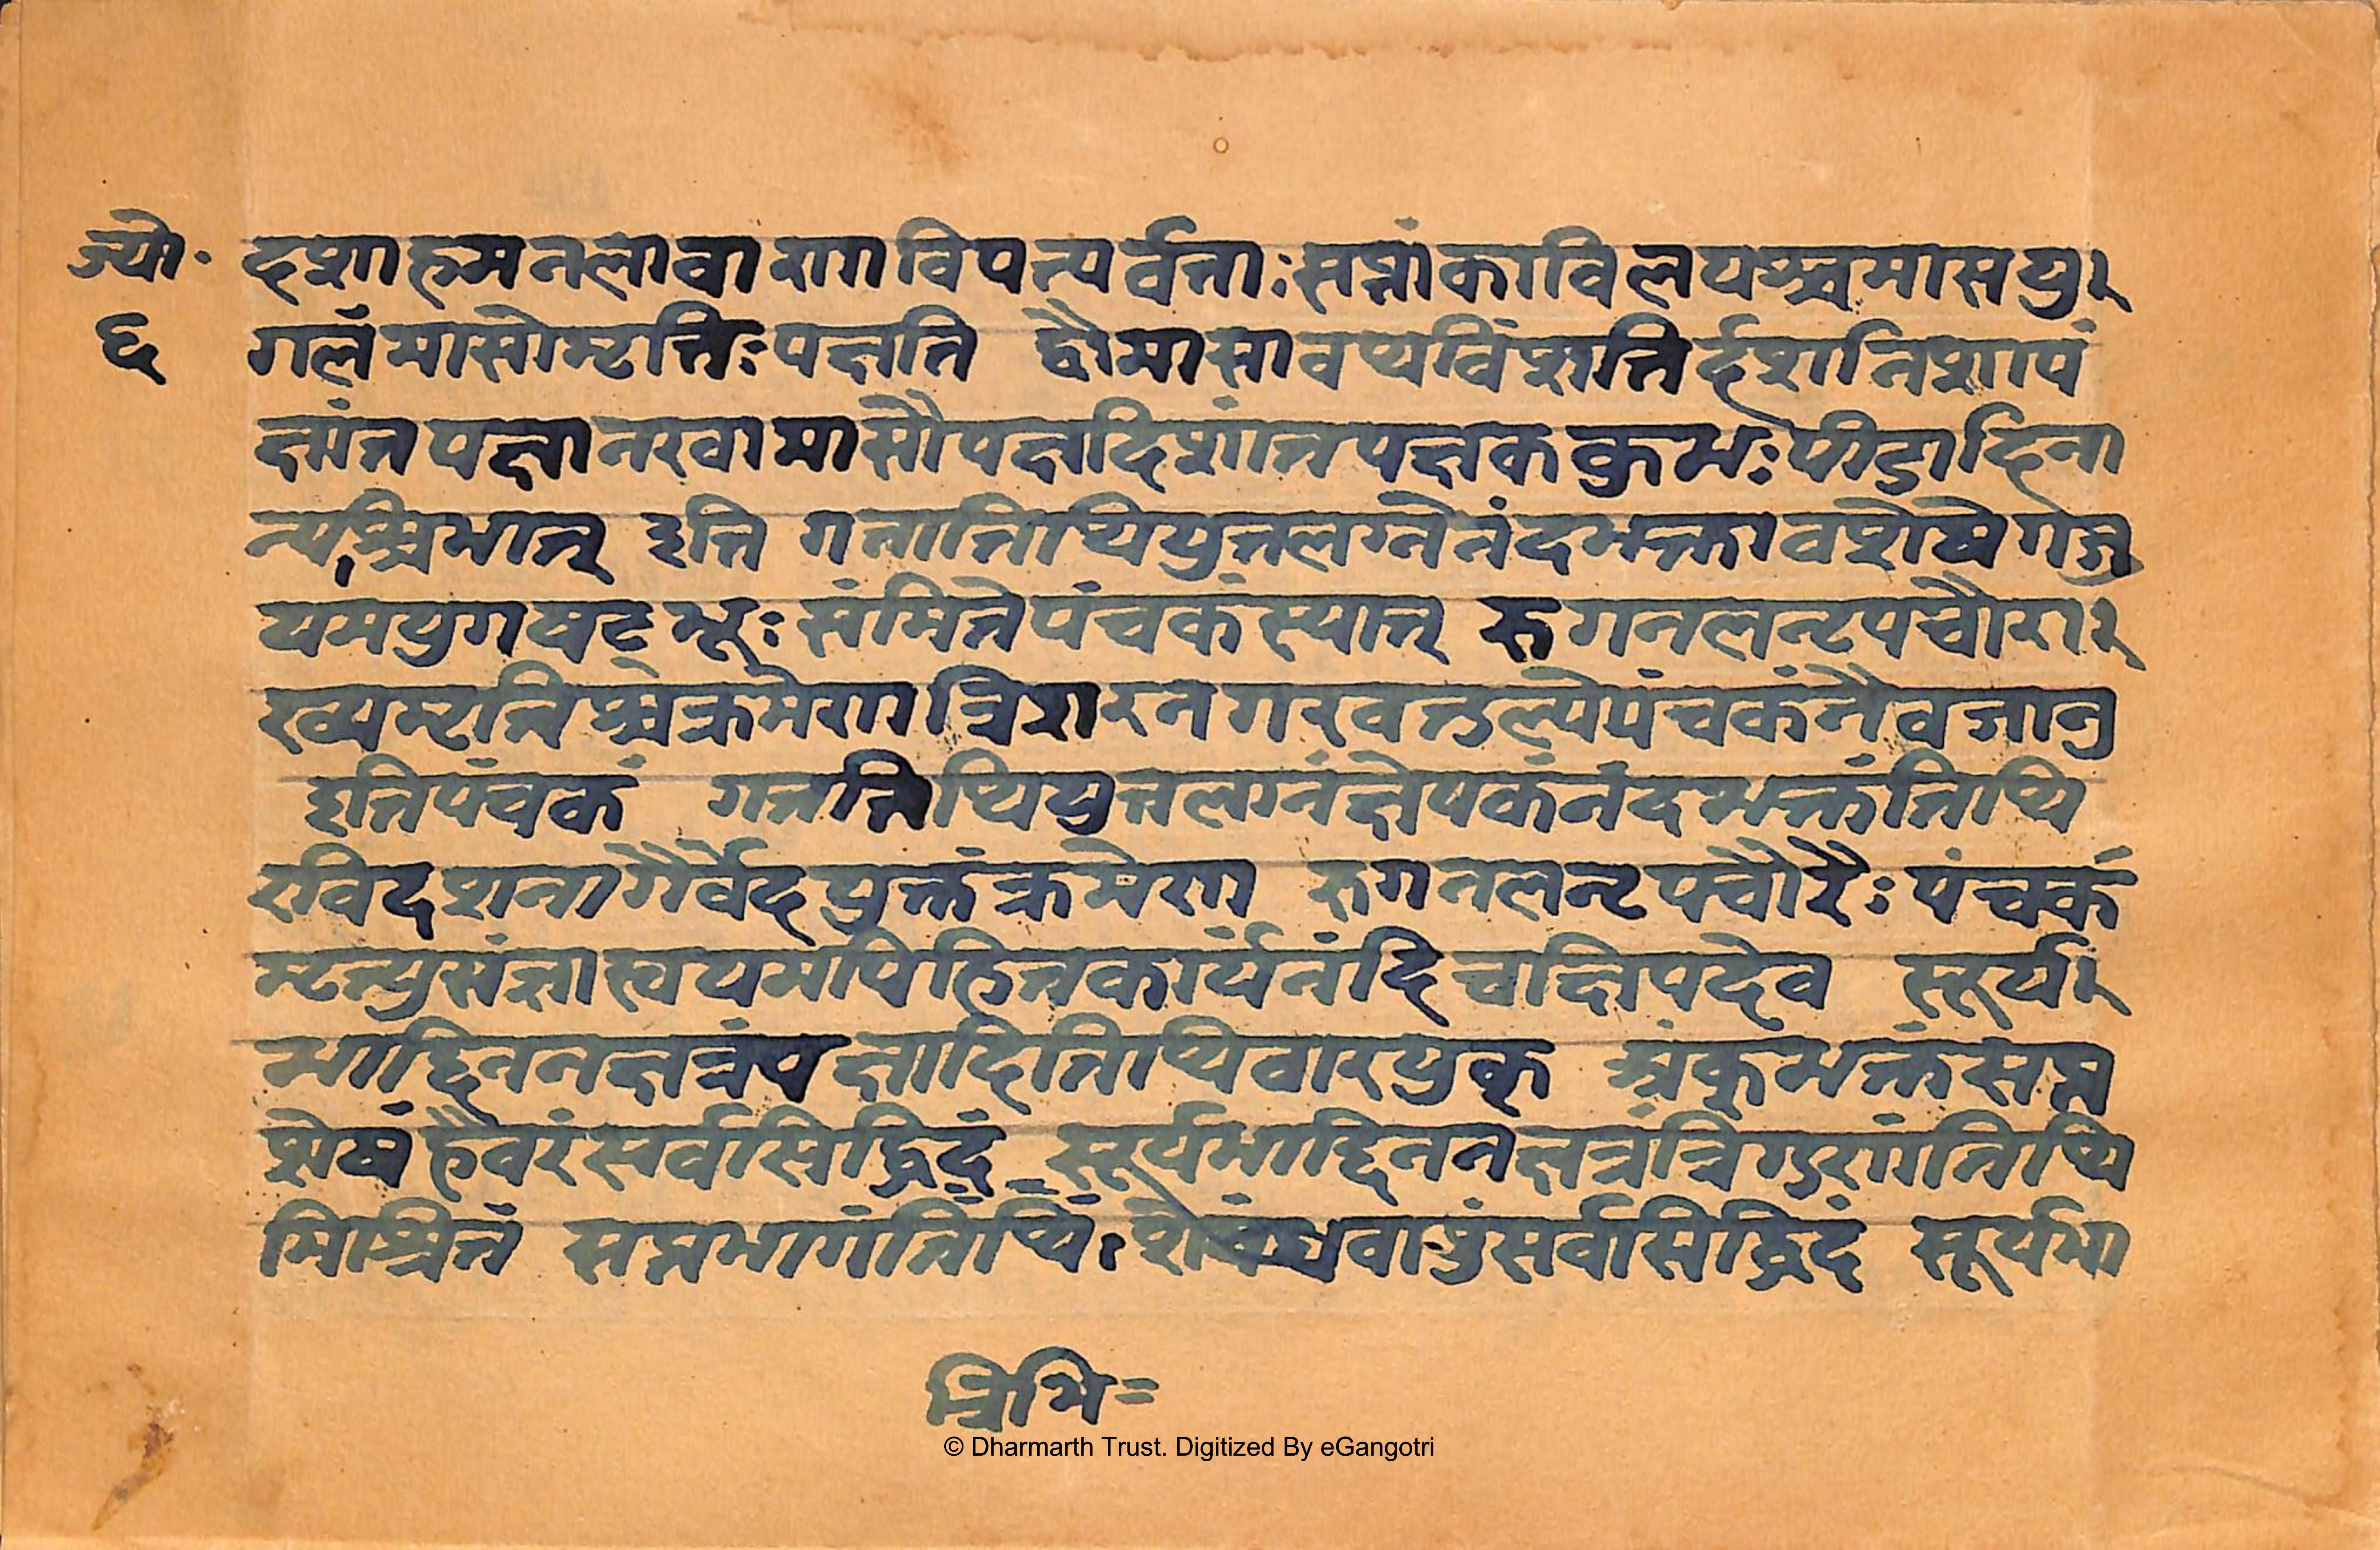 ज्यो॰ दशाह्रमनलावाराणविपत्यर्वताःसप्तांकाविलयश्चमासयु
६ गलंमासोम्टतिःपक्षति द्वौमासावप्यविंशतिर्दशनिशापं
क्षांतपक्षानखामासौपक्षदिशांतपक्षककुभःपीडादिना
न्यश्विभात् इति गतातिथियुतलग्नेनंदभक्तावशेषेगज
यमयुगषट्भूःसंमितेपंचकंस्यात् रुगनलन्टपचौरा
ख्यम्टतिश्चक्रमेणत्रिशरनगखतल्पेपंचकंनैवजानु
इतिपंचकं गततिथियुतलग्नंक्षेपकंनंदभक्तंतिथि
रविदशनागैर्वेदयुक्तंक्रमेण रुगनलन्टपचौरैःपंचकं
म्टत्युसंज्ञास्वयमपिहितकार्यनंदिचाक्षिपदेव सूर्या
भाद्दिननक्षत्रंपक्षादितिथिवारयुक् अंकुभक्तंसप्त
शेषंहैवरंसर्वसिद्धिदं सूर्यभाद्दिननक्षत्रंत्रिगुणंतिथि
मिश्रितं सप्तभागंतिथिं शेषंध्रवाडुंसर्वासिद्धिदं सूर्यभा
त्रिभि=
© Dharmarth Trust. Digitized By eGangotri